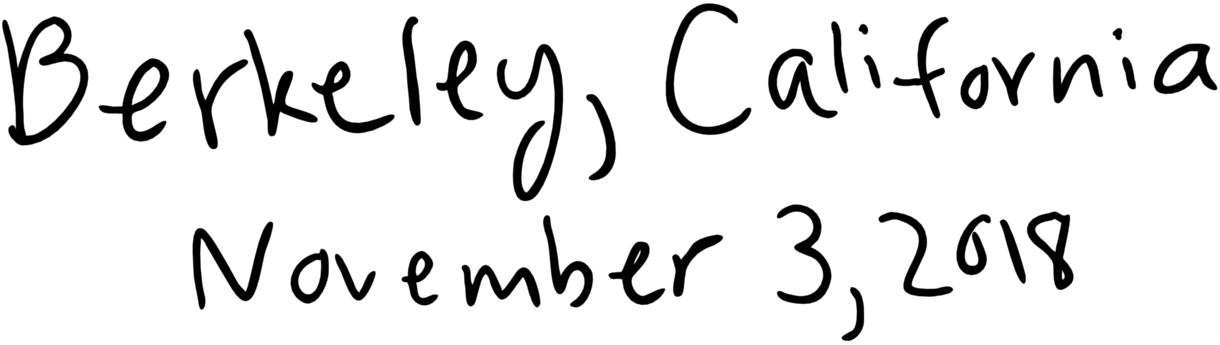 Berkeley, California
November 3, 2018